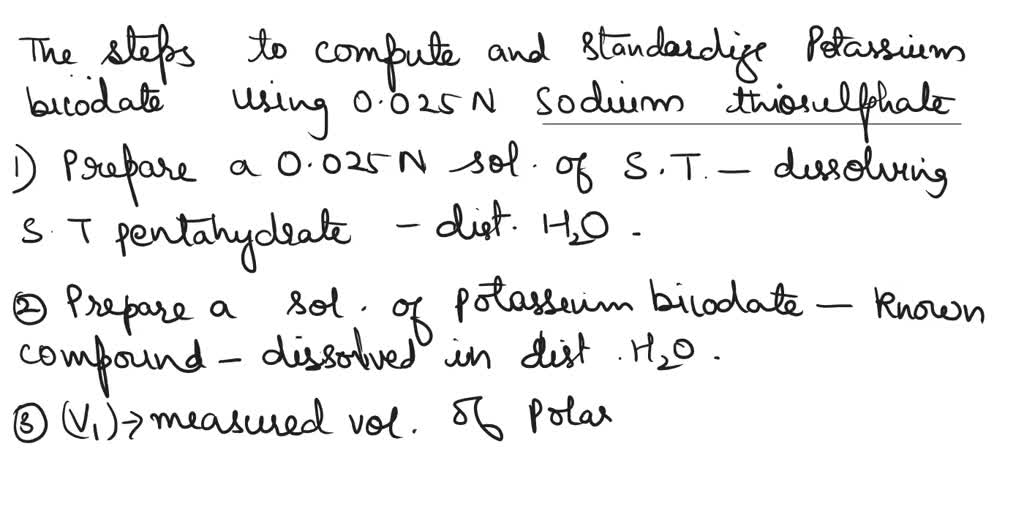 The steps to compute and standardize Potassium
bicodate using 0.025 N sodium thiosulphate
1) Prepare a 0.025 N sol. of S.T. - dissolving
S.T pentahydrate - dist. H₂O.
② Prepare a sol. of potassium bicodate - known
compound - dissolved in dist. H₂O.
③ (V₁) → measured vol. of Potas